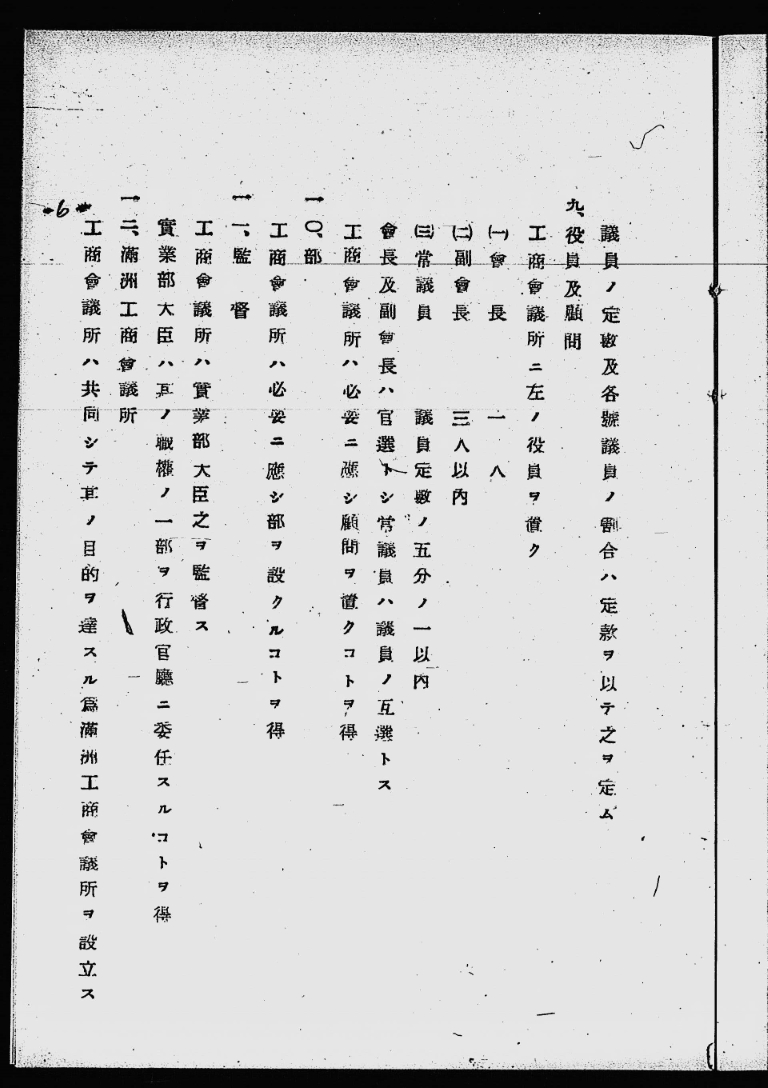 議員ノ定數及各號議員ノ割合ハ定款ヲ以テ之ヲ定ム
九、役員及顧問
工商會議所ニ左ノ役員ヲ置ク
㈠會長 一人
㈡副會長 三人以內
㈢常議員 議員定數ノ五分ノ一以內
會長及副會長ハ官選トシ常議員ハ議員ノ互選トス
工商會議所ハ必要ニ應シ顧問ヲ置クコトヲ得
一〇、部
工商會議所ハ必要ニ應シ部ヲ設クルコトヲ得
一一、監督
工商會議所ハ實業部大臣之ヲ監督ス
實業部大臣ハ其ノ職權ノ一部ヲ行政官廳ニ委任スルコトヲ得
一二、滿洲工商會議所
工商會議所ハ共同シテ其ノ目的ヲ達スル爲滿洲工商會議所ヲ設立ス
6